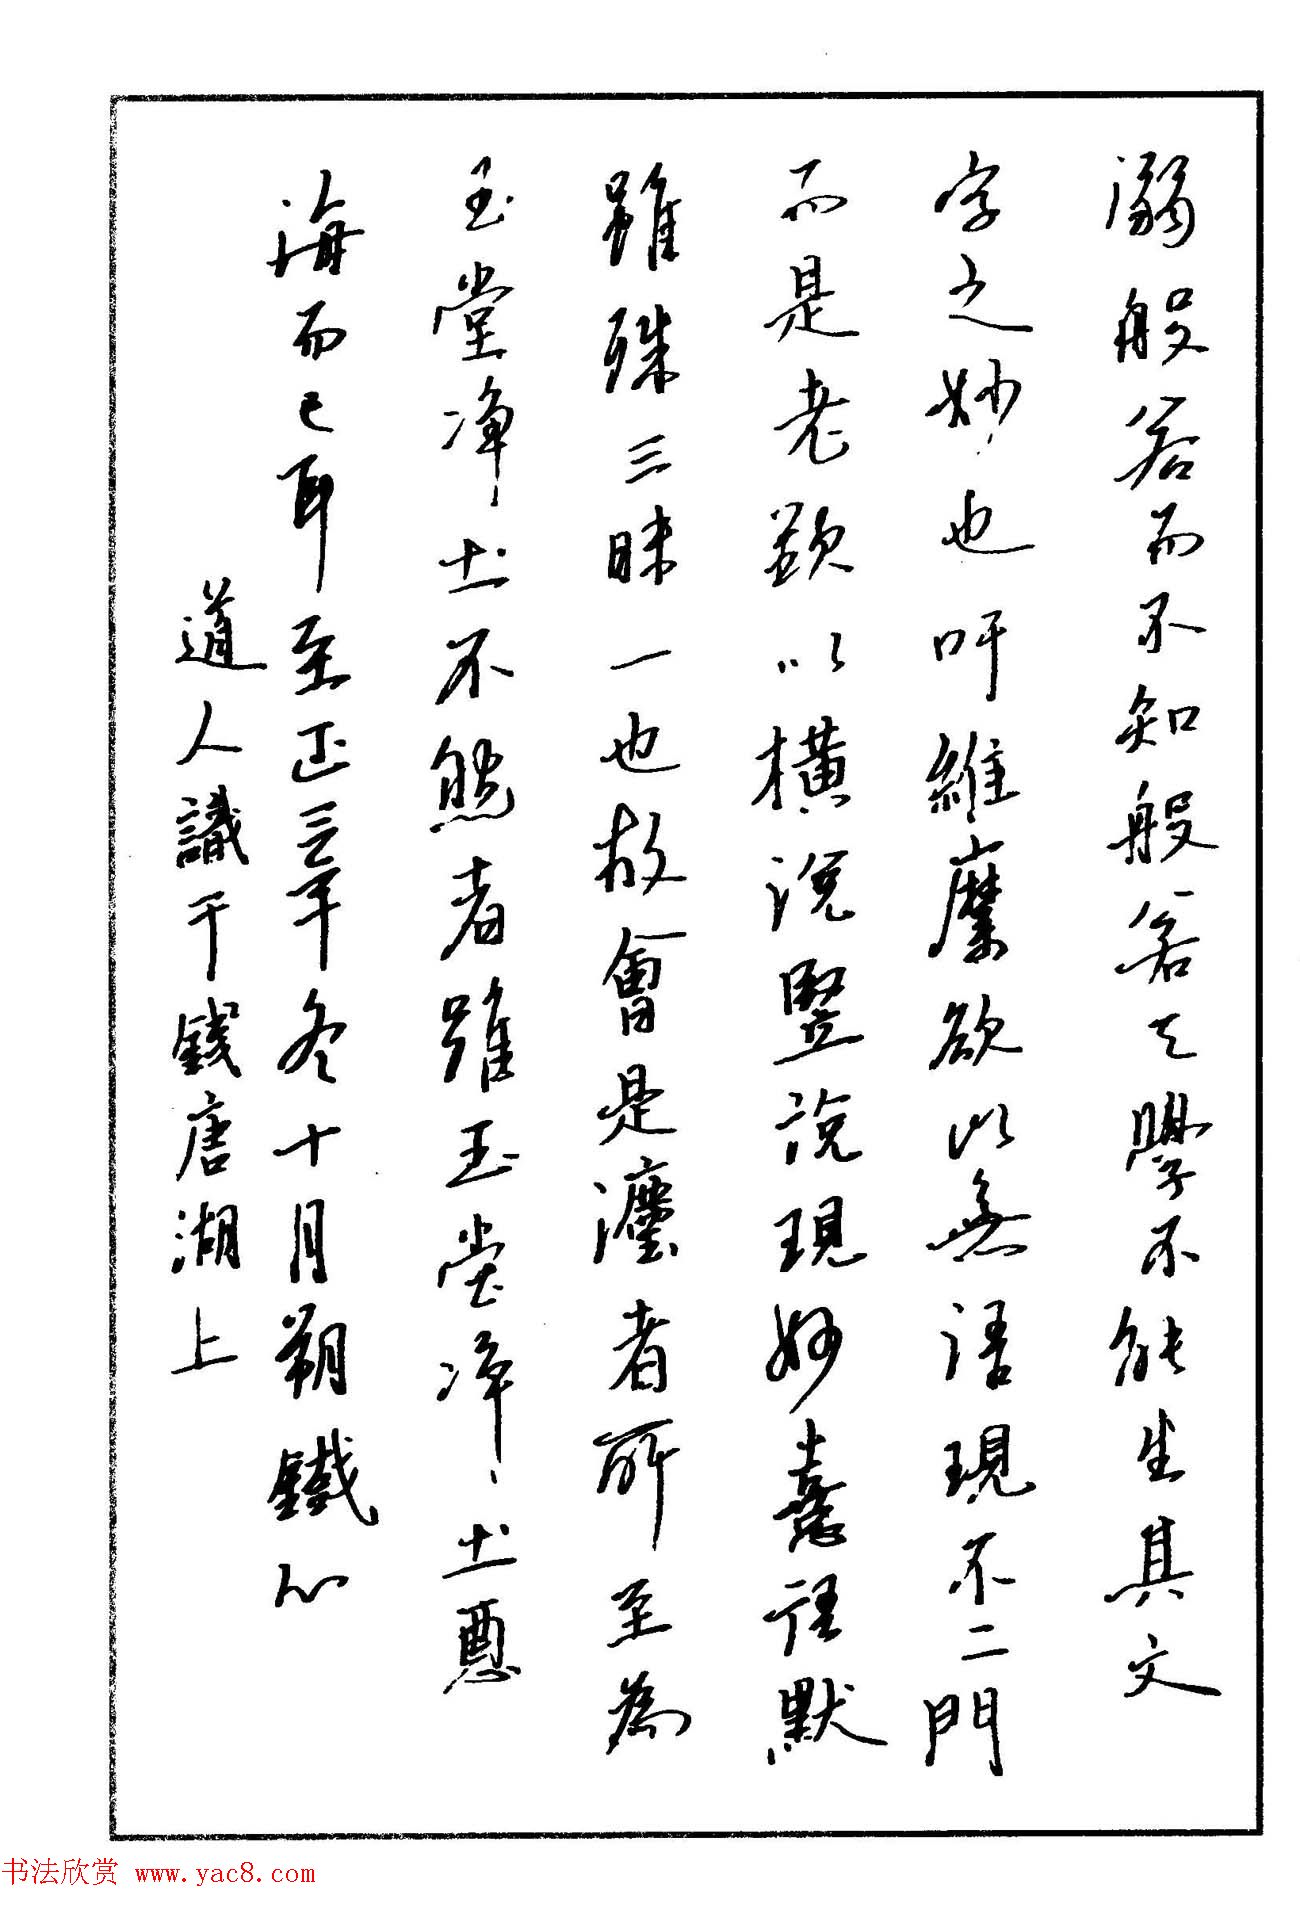 溺般若而不知般若之學不能生其文
字之妙也吁維摩欲以無語現不二門
而是老欲以橫說豎說現妙喜語默
雖殊三昧一也故會是瀍者所至為
玉堂淨土不然者雖玉堂淨土惡
海而已耳至正三年冬十月朔鐵心
道人識于錢唐湖上
书法欣赏 www.yac8.com